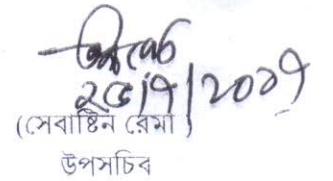 ২৫/৭/২০১৭
(সেবাষ্টিন রেমা)
উপসচিব